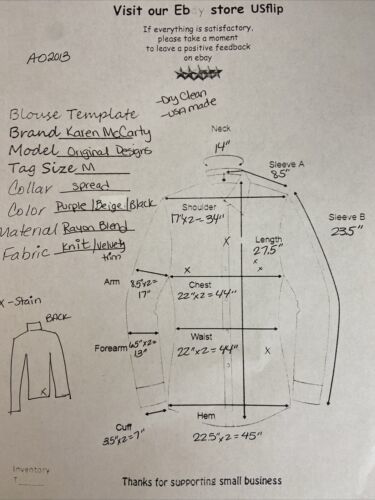 Visit our Ebay store USflip
If everything is satisfactory,
please take a moment
to leave a positive feedback
on ebay
AO2013
-Dry Clean
-USA made
Blouse Template
Brand Karen McCarty
Model Original Designs
Tag Size M
Collar spread
Color Purple/Beige/Black
Material Rayon Blend
Fabric Knit/velvety
trim
Neck
14"
Sleeve A
8.5"
Shoulder
17"x2=34"
Sleeve B
23.5"
x
Length
27.5"
x x
x
Arm
8.5"x2=
17"
Chest
22"x2=44"
x-Stain
BACK
x
Forearm 6.5"x2=
13"
Waist
22"x2=44"
x
Cuff
3.5"x2=7"
Hem
22.5"x2=45"
Inventory
T
Thanks for supporting small business